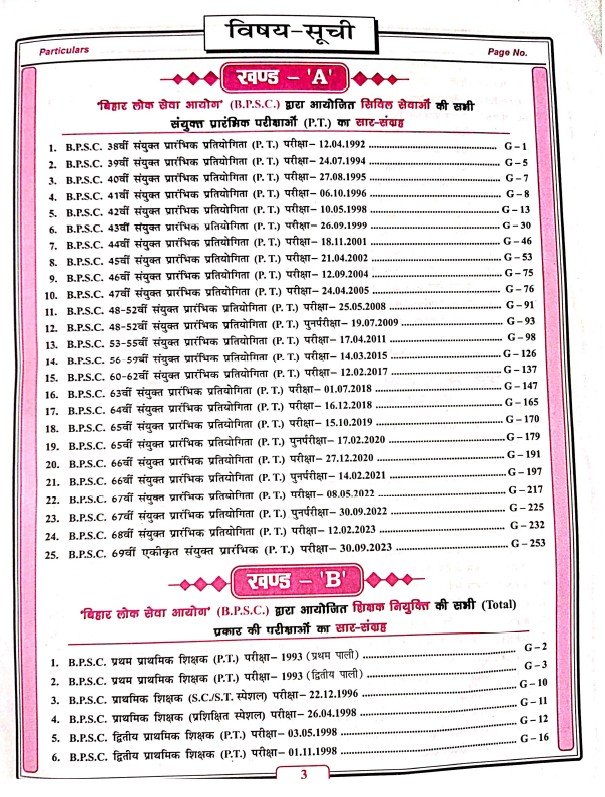 विषय-सूची
Particulars
Page No.
खण्ड - 'A'
'बिहार लोक सेवा आयोग' (B.P.S.C.) द्वारा आयोजित सिविल सेवाओं की सभी
संयुक्त प्रारंभिक परीक्षाओं (P.T.) का सार-संग्रह
1. B.P.S.C. 38वीं संयुक्त प्रारंभिक प्रतियोगिता (P. T.) परीक्षा– 12.04.1992 ... G – 1
2. B.P.S.C. 39वीं संयुक्त प्रारंभिक प्रतियोगिता (P. T.) परीक्षा– 24.07.1994 ... G – 5
3. B.P.S.C. 40वीं संयुक्त प्रारंभिक प्रतियोगिता (P. T.) परीक्षा– 27.08.1995 ... G – 7
4. B.P.S.C. 41वीं संयुक्त प्रारंभिक प्रतियोगिता (P. T.) परीक्षा– 06.10.1996 ... G – 8
5. B.P.S.C. 42वीं संयुक्त प्रारंभिक प्रतियोगिता (P. T.) परीक्षा– 10.05.1998 ... G – 13
6. B.P.S.C. 43वीं संयुक्त प्रारंभिक प्रतियोगिता (P. T.) परीक्षा= 26.09.1999 ... G – 30
7. B.P.S.C. 44वीं संयुक्त प्रारंभिक प्रतियोगिता (P. T.) परीक्षा– 18.11.2001 ... G – 46
8. B.P.S.C. 45वीं संयुक्त प्रारंभिक प्रतियोगिता (P. T.) परीक्षा– 21.04.2002 ... G – 53
9. B.P.S.C. 46वीं संयुक्त प्रारंभिक प्रतियोगिता (P. T.) परीक्षा– 12.09.2004 ... G – 75
10. B.P.S.C. 47वीं संयुक्त प्रारंभिक प्रतियोगिता (P. T.) परीक्षा– 24.04.2005 ... G – 76
11. B.P.S.C. 48-52वीं संयुक्त प्रारंभिक प्रतियोगिता (P. T.) परीक्षा– 25.05.2008 ... G – 91
12. B.P.S.C. 48-52वीं संयुक्त प्रारंभिक प्रतियोगिता (P. T.) पुनर्परीक्षा– 19.07.2009 ... G – 93
13. B.P.S.C. 53-55वीं संयुक्त प्रारंभिक प्रतियोगिता (P. T.) परीक्षा– 17.04.2011 ... G – 98
14. B.P.S.C. 56-59वीं संयुक्त प्रारंभिक प्रतियोगिता (P. T.) परीक्षा– 14.03.2015 ... G – 126
15. B.P.S.C. 60-62वीं संयुक्त प्रारंभिक प्रतियोगिता (P. T.) परीक्षा– 12.02.2017 ... G – 137
16. B.P.S.C. 63वीं संयुक्त प्रारंभिक प्रतियोगिता (P. T.) परीक्षा– 01.07.2018 ... G – 147
17. B.P.S.C. 64वीं संयुक्त प्रारंभिक प्रतियोगिता (P. T.) परीक्षा– 16.12.2018 ... G – 165
18. B.P.S.C. 65वीं संयुक्त प्रारंभिक प्रतियोगिता (P. T.) परीक्षा– 15.10.2019 ... G – 170
19. B.P.S.C. 65वीं संयुक्त प्रारंभिक प्रतियोगिता (P. T.) पुनर्परीक्षा– 17.02.2020 ... G – 179
20. B.P.S.C. 66वीं संयुक्त प्रारंभिक प्रतियोगिता (P. T.) परीक्षा– 27.12.2020 ... G – 191
21. B.P.S.C. 66वीं संयुक्त प्रारंभिक प्रतियोगिता (P. T.) पुनर्परीक्षा– 14.02.2021 ... G – 197
22. B.P.S.C. 67वीं संयुक्त प्रारंभिक प्रतियोगिता (P. T.) परीक्षा– 08.05.2022 ... G – 217
23. B.P.S.C. 67वीं संयुक्त प्रारंभिक प्रतियोगिता (P. T.) पुनर्परीक्षा– 30.09.2022 ... G – 225
24. B.P.S.C. 68वीं संयुक्त प्रारंभिक प्रतियोगिता (P. T.) परीक्षा– 12.02.2023 ... G – 232
25. B.P.S.C. 69वीं एकीकृत संयुक्त प्रारंभिक (P. T.) परीक्षा– 30.09.2023 ... G – 253
खण्ड - 'B'
'बिहार लोक सेवा आयोग' (B.P.S.C.) द्वारा आयोजित शिक्षक नियुक्ति की सभी (Total)
प्रकार की परीक्षाओं का सार-संग्रह
1. B.P.S.C. प्रथम प्राथमिक शिक्षक (P.T.) परीक्षा– 1993 (प्रथम पाली) ... G – 2
2. B.P.S.C. प्रथम प्राथमिक शिक्षक (P.T.) परीक्षा– 1993 (द्वितीय पाली) ... G – 3
3. B.P.S.C. प्राथमिक शिक्षक (S.C./S.T. स्पेशल) परीक्षा– 22.12.1996 ... G – 10
4. B.P.S.C. प्राथमिक शिक्षक (प्रशिक्षित स्पेशल) परीक्षा– 26.04.1998 ... G – 11
5. B.P.S.C. द्वितीय प्राथमिक शिक्षक (P.T.) परीक्षा– 03.05.1998 ... G – 12
6. B.P.S.C. द्वितीय प्राथमिक शिक्षक (P.T.) परीक्षा– 01.11.1998 ... G – 16
3